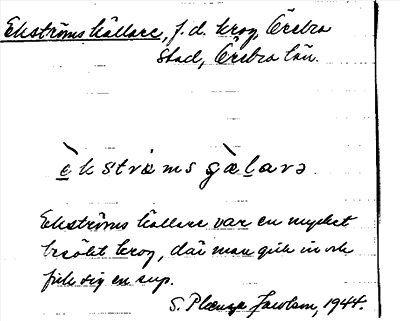 Ekströms källare, f. d. krog, Örebro
stad, Örebro län.
èkströms gä̀larə
Ekströms källare var en mycket
besökt krog, där man gick in och
fick sig en sup.
S. Jacobson, 1944.